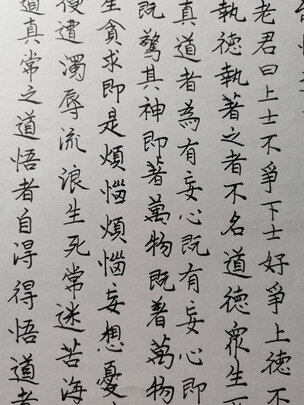 老君曰上士不爭下士好爭上德不
執德執著之者不名道德眾生
真道者為有妄心既有妄心即
既驚其神即著萬物既著萬物
生貪求即是煩惱煩惱妄想憂
便遭濁辱流浪生死常迷苦海
道真常之道悟者自得得悟道者